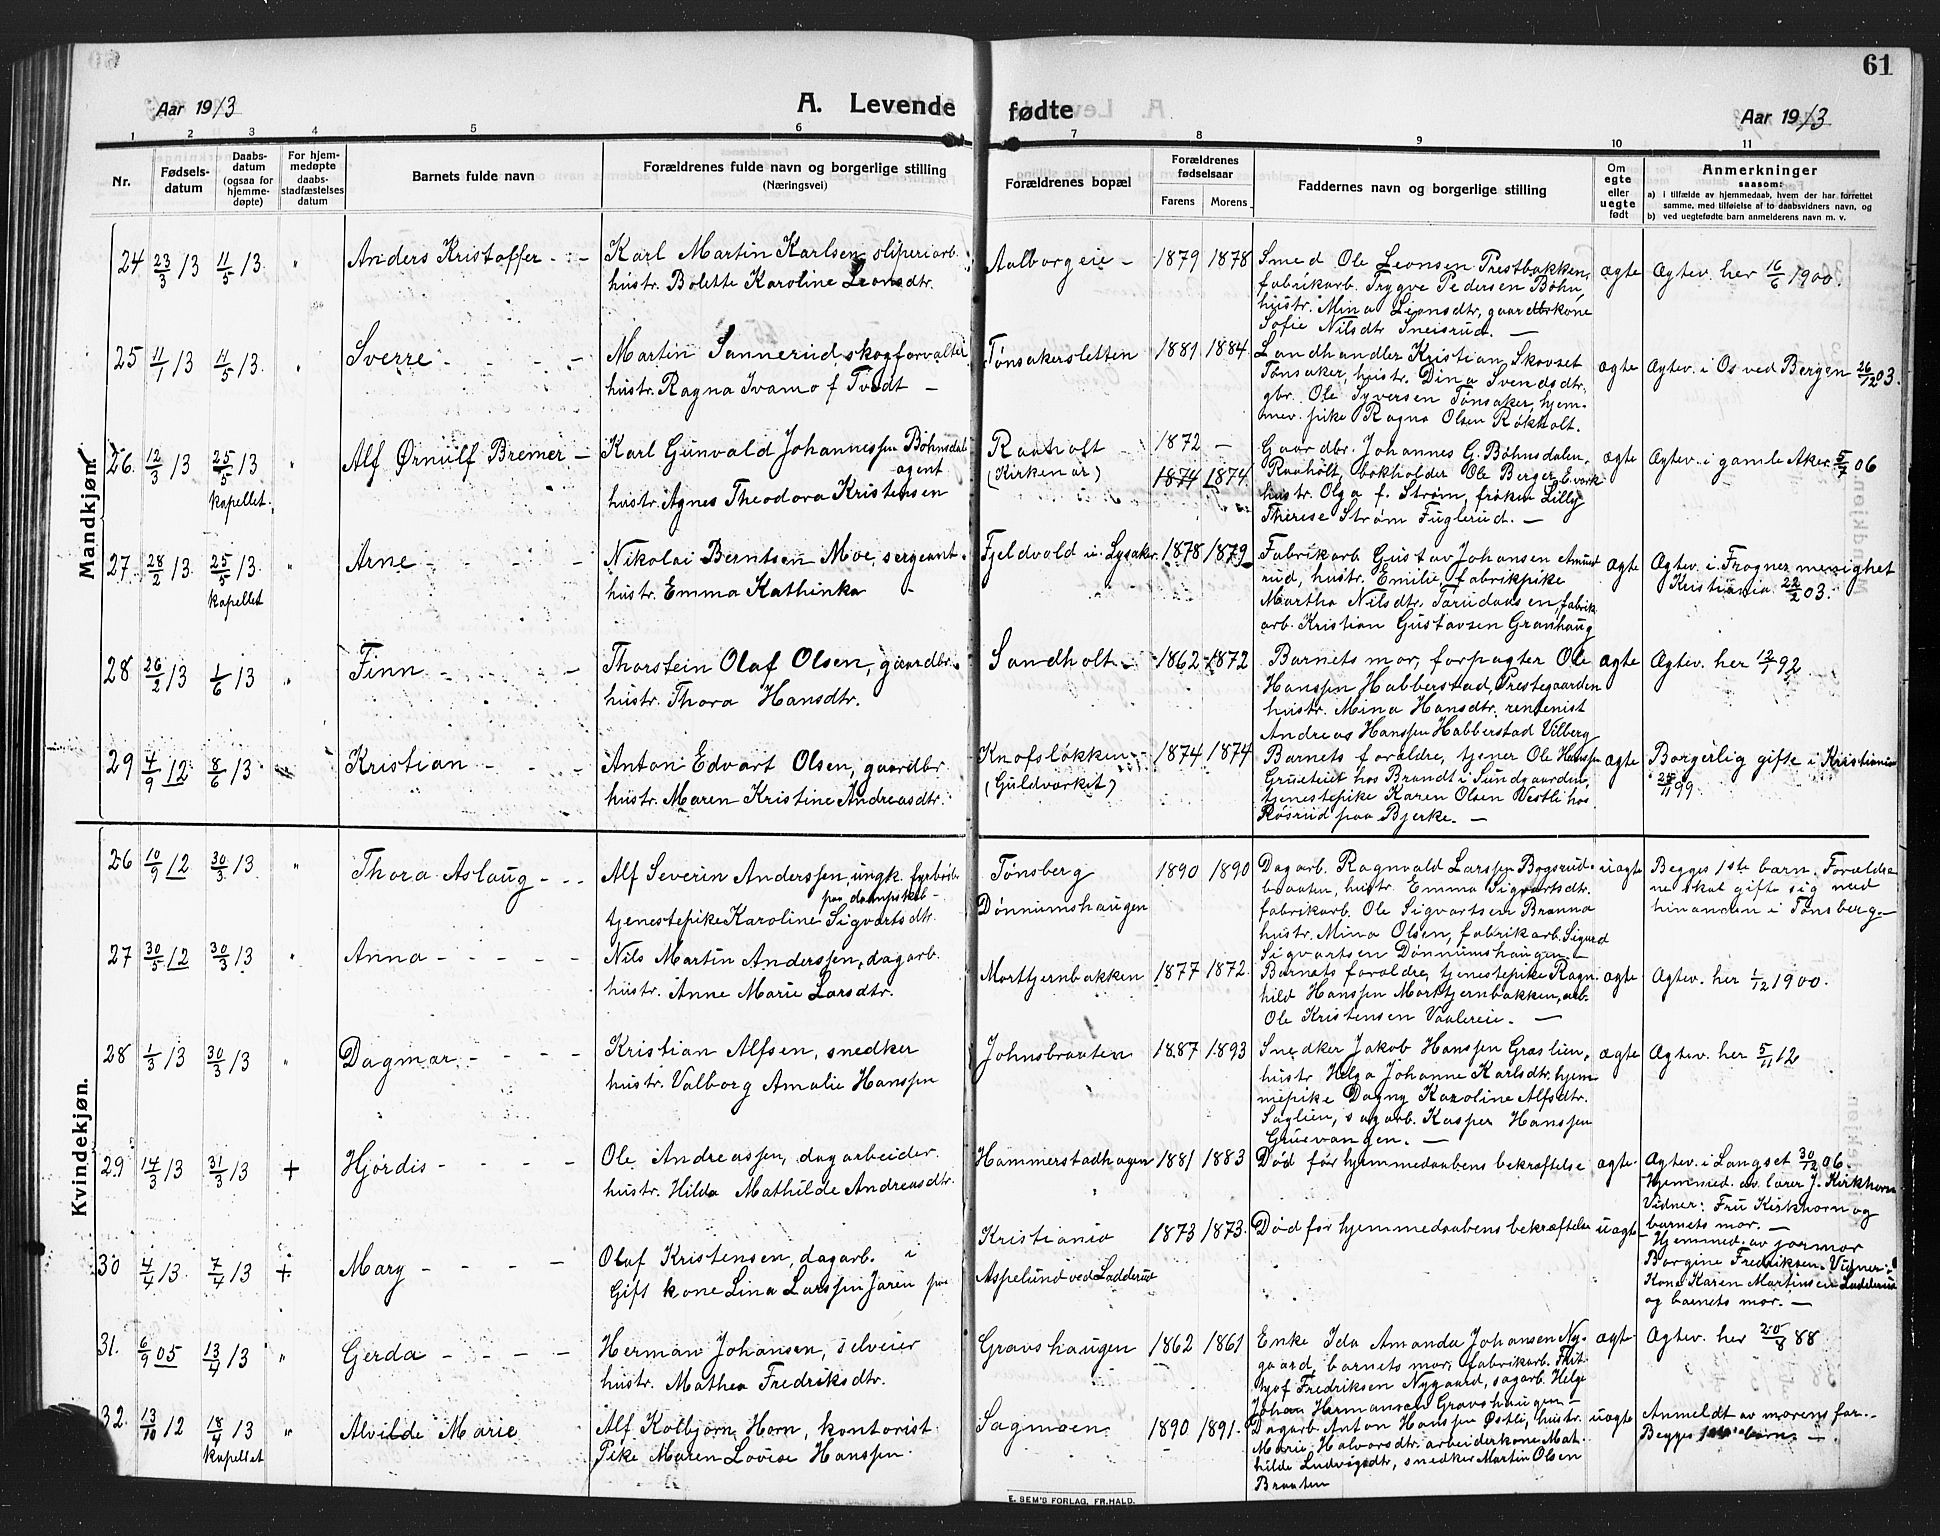 61
Aar 1913
A. Levende fødte
Aar 1913
1 2 3 4 5 6 7 8 9 10 11
Nr.
Fødsels-
datum
Daabs-
datum
(ogsaa for
hjemme-
døpte)
For hjem-
medøpte
daabs-
stadfæstelses
datum
Barnets fulde navn
Forældrenes fulde navn og borgerlige stilling
(Næringsvei)
Forældrenes bopæl
Forældrenes
fødselsaar
Farens Morens
Faddernes navn og borgerlige stilling
Om
egte
eller
uegte
født
Anmerkninger
saasom:
a) i tilfælde av hjemmedaab, hvem der har forrettet
samme, med tilføielse af to daabsvidners navn, og
b) ved uegtefødte barn anmelderens navn m. v.
Mandkjøn.
24 23/3 13 11/5 13 " Anders Kristoffer
Karl Martin Karlsen sliperiarb.
hustr. Bolette Karoline Leonsdtr.
Aalborgeie 1879 1878
Smed Ole Leonsen Prestbakken,
fabrikarb. Trygve Pedersen Bøhn,
hustr. Mina Leonsdtr, gaardbrkone
Sofie Nilsdtr Sneisrud.
ægte
Ægtev. her 16/6 1900.
25 11/1 13 11/5 13. " Sverre
Martin Sannerud, skogforvalter
hustr. Ragna Ivama f. Tvedt
Tønsakersletten 1881 1884
Landhandler Kristian Skovset
Tønsaker, hustr. Dina Svendsdtr,
gbr. Ole Syversen Tønsaker, hjem-
mev. pike Ragna Olsen Røkholt.
ægte
Ægtev. i Os ved Bergen 26/12 03.
26. 12/3 13 25/5 13 " Alf Ørnulf Bremer
kapellet.
Karl Gunvald Johannessen Bøhnsdalen
agent
hustr. Agnes Theodora Kristensen
Raaholt
(Kirkenær)
1872
1874 1874.
Gaardbr. Johannes G. Bøhnsdalen,
Raaholt, bokholder Ole Berger, E.verk
hustr. Olga f. Strøm, frøken Lilly
Therese Strøm Fuglerud.
ægte
Ægtev. i gamle Aker 5/7 06
27. 28/2 13. 25/5 13. " Arne
kapellet
Nikolai Berntsen Moe, sergeant
hustr. Emma Kathinka
Fjeldvold i Lysaker. 1878 1879
Fabrikarb Gustav Johansen Amund
rud, hustr. Emilie, fabrikpike
Martha Nilsdtr. Tærudaasen, fabrik
arb. Kristian Gustavsen Granhaug
ægte
Ægtev. i Frogner menighet
Kristiania 22/2 03.
28 26/2 13 1/6 13 " Finn
Thorstein Olaf Olsen, gaardbr.
hustr. Thora Hansdtr.
Sandholt 1862 1872
Barnets mor, forpagter Ole
Hanssen Habberstad, Prestegaarden
hustr. Mina Hansdtr. rentenist
Andreas Hanssen Habberstad Vilberg
ægte
Ægtev. her 12/7 92
29 4/9 12 8/6 13 " Kristian
Anton Edvart Olsen, gaardbr
hustr. Maren Kristine Andreasdtr.
Knofsløkken
(Guldverket)
1874 1874
Barnets forældre, tjener Ole Hanssen
Grueteiet hos Brandt i Sundgaarden,
tjenestepike Karen Olsen Vestli hos
Røsrud paa Bjerke.
ægte
Borgerlig gifte i Kristiania
25/11 99.
Kvindekjøn.
26 10/9 12 30/3 13 " Thora Aslaug
Alf Severin Anderssen, ungk. fyrbøt.
paa dampskib
tjenestepike Karoline Sigvartsdtr.
Tønsberg
Dønnumshaugen
1890 1890
Dagarb. Ragnvald Larssen Bogsrud-
braaten, hustr. Emma Sigvartsdtr.
fabrikarb. Ole Sigvartsen Brænna
hustr. Mina Olsen, fabrikarb. Sigurd
Sigvartsen Dønnumshaugen
uægte
Begges 1ste barn. Forældre
ne skal gifte sig med
hinanden i Tønsberg.
27 30/5 12 30/3 13 " Anna
Nils Martin Anderssen, dagarb.
hustr. Anne Marie Larsdtr.
Morttjernbakken 1877 1872.
Barnets forældre, tjenestepike Ragn
hild Hanssen Morttjernbakken, arb.
Ole Kristensen Vaalereie.
ægte
Ægtev. her 1/12 1900.
28 1/3 13 30/3 13 " Dagmar
Kristian Alfsen, snedker
hustr. Valborg Amalie Hanssen
Johnsbraaten 1887 1893
Snedker Jakob Hanssen Græslien,
hustr Helga Johanne Karlsdtr. hjem
mepike Dagny Karoline Alfsdtr.
Saglien, sagarb. Kasper Hanssen
Gruevangen.
ægte
Ægtev. her 5/11 12
29 14/3 13 31/3 13 + Hjørdis
Ole Andreassen, dagarbeider
hustr. Hilda Mathilde Andreasdtr.
Hammerstadhagen 1881 1883
Død før hjemmedaabens bekræftelse
ægte
Ægtev. i Langset 30/12 06.
Hjemmed. av lærer J. Kirkhorn
Vidner: Fru Kirkhorn og
barnets mor.
30 4/4 13. 7/4 13 + Mary
Olaf Kristensen, dagarb. i
Gift kone Lina Larssen Jaren paa
Kristiania
Aspelund ved Ladderud
1873 1873.
Død før hjemmedaabens bekræftelse
uægte
Hjemmed. av jormor
Borgine Fredriksen. Vidner:
Kone Karen Martinsen Ladderud
og barnets mor.
31. 6/9 05 13/4 13 " Gerda
Herman Johansen, selveier
hustr. Mathea Fredriksdtr.
Gravshaugen 1862 1861
Enke Ida Amanda Johansen Ny-
gaard, barnets mor, fabrikarb. Frit
hjof Fredriksen Nygaard, sagarb. Helge
Johan Hermansen Gravshaugen
ægte
Ægtev. her 20/8 88
32. 13/10 12 18/4 13 " Alvilde Marie
kapellet
Alf Kolbjørn Horn, kontorist
Pike Maren Lovise Hanssen
Sagmoen 1890 1891.
Dagarb. Anton Hanssen Østli, hustr.
Marie Halvorsdtr. arbeiderkone Mat-
hilde Ludvigsdtr, snedker Martin Olsen
Braaten
uægte
Anmeldt av morens far.
Begges 1ste barn.
E. SEM'S FORLAG, FR.HALD.